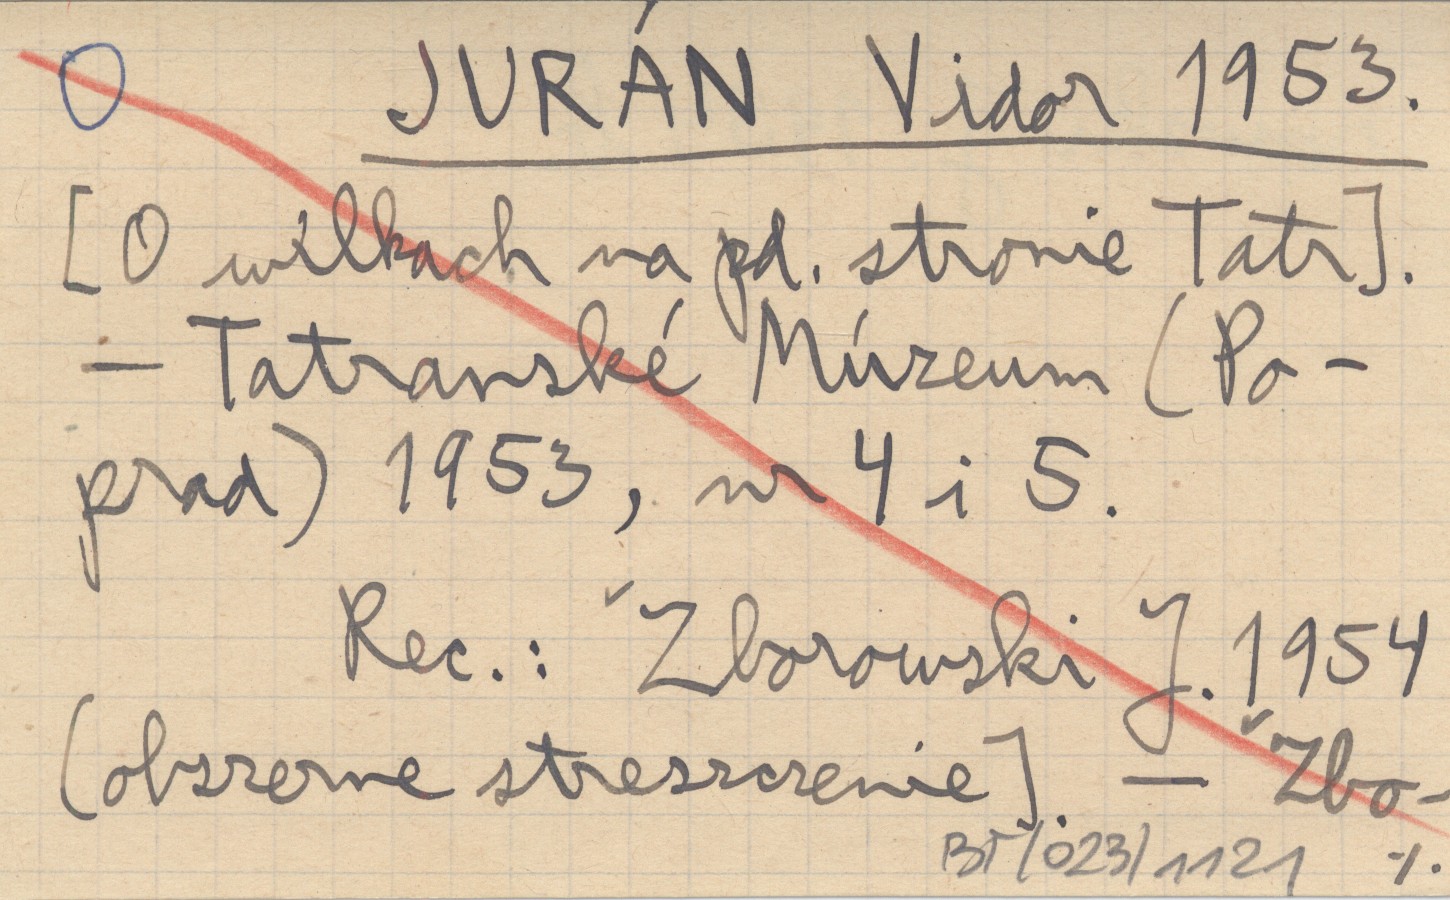 O JURÁN Vidor 1953.
[O wilkach na pd. stronie Tatr].
— Tatranské Múzeum (Po-
prad) 1953, nr 4 i 5.
Rec.: ✓Zborowski J. 1954
(obszerne streszczenie]. — ✓Zbo-
BT/023/1121 ·/.